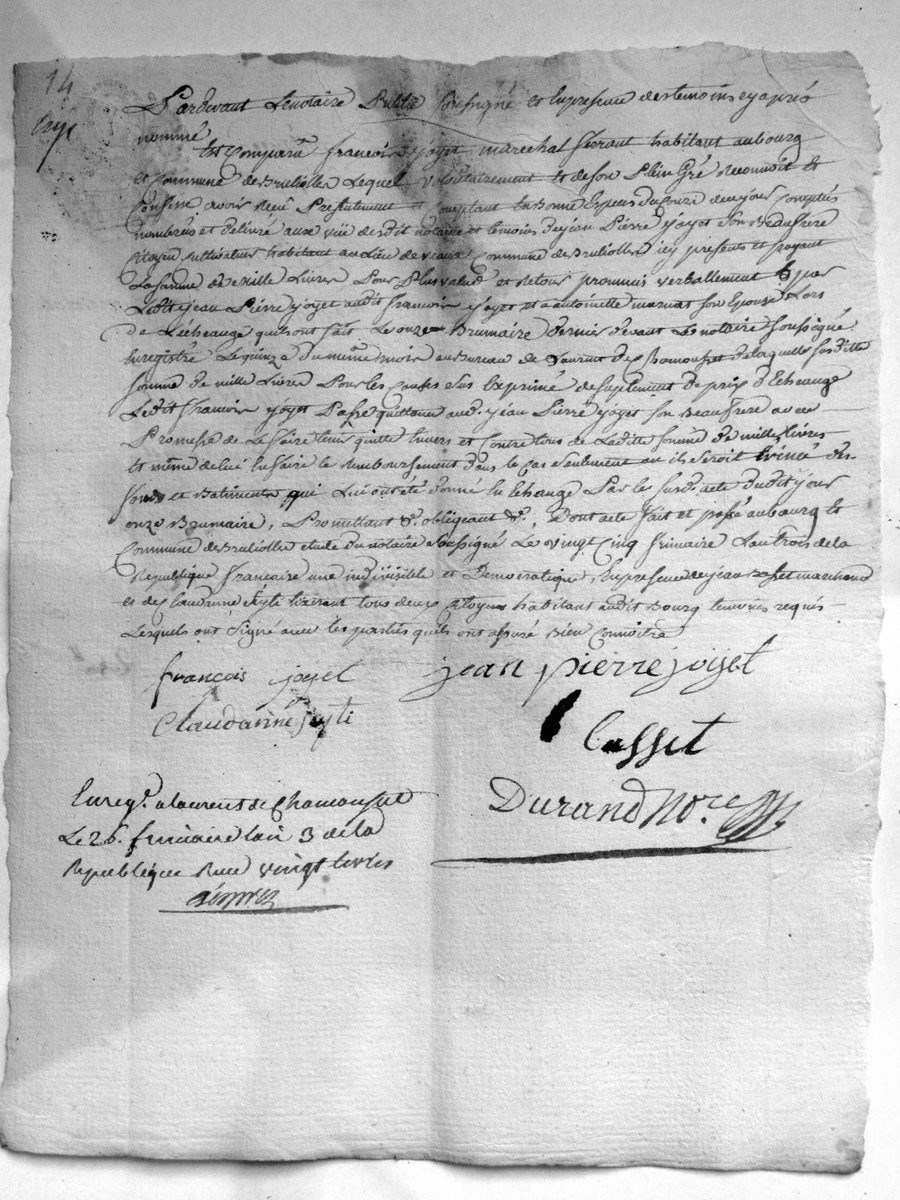 14
Pardevant Le notaire Public Soussigné et En presence des temoins cy aprés
nommé
Est Comparu francois jyoyet marechal ferrant habitant au bourg
et Commune de Brullolles Lequel volontairement et de Son Plein Gré Reconnoit et
Confesse avoir Reçu Presentement et Comptant En Bonne Especes du Cours de ce jour Comptés
nombrées et délivré aux vüe dedit notaire et temoins de jean Pierre jyoyet Son Beaufrere
Citoyen cultivateur habitant au Lieu de veaux Commune de Brullolles icy présents et payant
La Somme de Mille Livres Pour Plus valüe et Retour prommis verballement par
Ledit jean Pierre jyoyet audit francois jyoyet et a antoinette marnat Son Epouse Lors
de L'échange quils ont fait Le onze Brumaire dernier devant Le notaire Soussigné
Enregistré Le quinze du même mois au Bureau de Laurent de Chamousset de laquelle Susditte
Somme de mille Livres Pour les Causes Sus Exprimé de Suplement de prix d'Echange
Ledit francois jyoyet Passe quittance aud. jean Pierre jyoyet Son Beaufrere avec
Promesse de Le faire tenir quitte Envers et Contre tous de Laditte Somme de mille Livres
Et même de lui En faire le Remboursement dans le Cas Seulement ou il Seroit Evincé des
fonds et Batiments qui Lui ont été donné En Echange Par le Susd. acte dudit jour
onze Brumaire, Promettant &. obligeant &. Dont acte fait et passé au bourg et
Commune de Brullolles etude du notaire Soussigné Le vingt Cinq frimaire L'an trois de la
Republique francaise une indivisible et Democratique, En presence de jean Basset marchand
et de Claudinne Eyti tixerant tous deux Citoyens habitant audit Bourg temoins requis
Lesquels ont Signé avec les parties quils ont assuré Bien Connoitre
françois joyet jean pierre joyet
Claudarinne eyti
basset
Durand No.re
Enreg.é a laurent de Chamousset
Le 26 frimaire lan 3 de la
Republique Reçu vingt livres